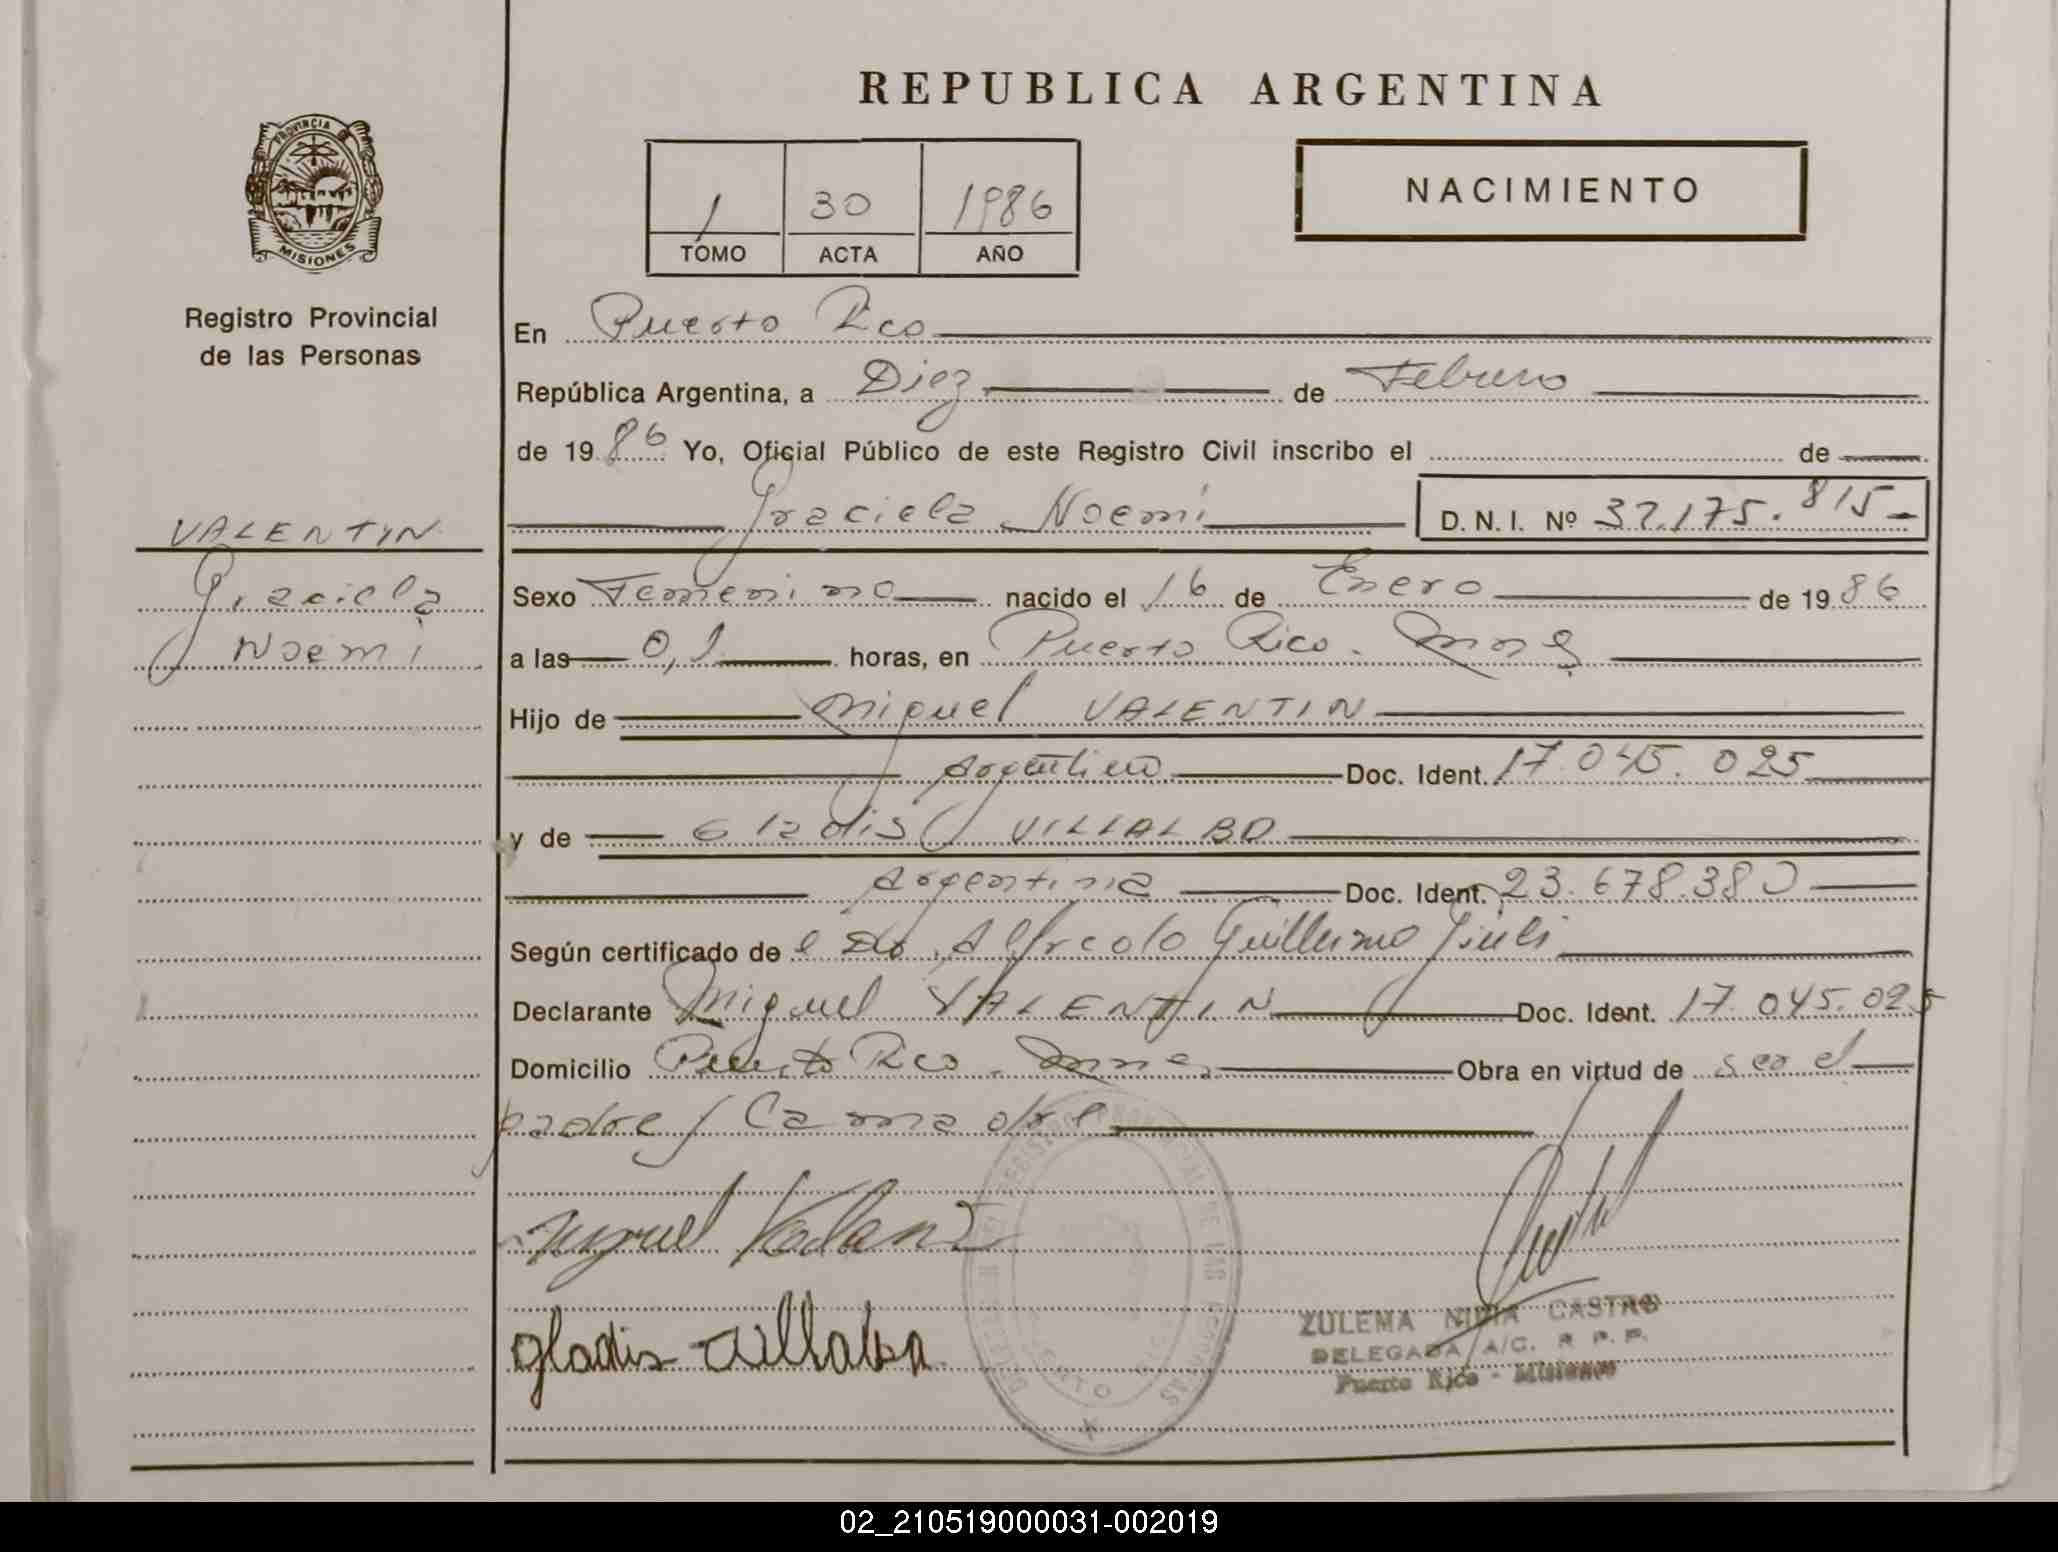 REPUBLICA ARGENTINA
PROVINCIA DE
MISIONES
Registro Provincial
de las Personas
1 30 1986
TOMO ACTA AÑO
NACIMIENTO
En Puerto Rico
República Argentina, a Diez de Febrero
de 1986 Yo, Oficial Público de este Registro Civil inscribo el de
Graciela Noemi D. N. I. Nº 32.175.815-
VALENTIN
Graciela
Noemi
Sexo Femenino nacido el 16 de Enero de 1986
a las 0,1 horas, en Puerto Rico. Mnes
Hijo de Miguel VALENTIN
Argentino Doc. Ident. 17.045.025
y de Gladis VILLALBA
Argentina Doc. Ident. 23.678.380
Según certificado de el Dr. Alfredo Guillermo
Declarante Miguel VALENTIN Doc. Ident. 17.045.025
Domicilio Puerto Rico. Mnes. Obra en virtud de ser el
padre/
Miguel
Gladis Villalba
ZULEMA NIDIA CASTRO
DELEGADA A/C. R. P. P.
Puerto Rico - Misiones
02_210519000031-002019